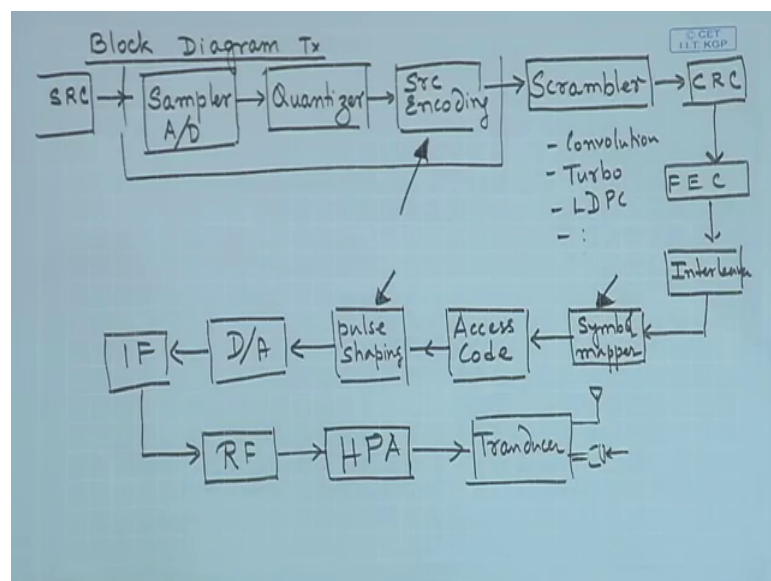 Block Diagram Tx
© CET
I.I.T. KGP
SRC
Sampler
A/D
Quantizer
Src
Encoding
Scrambler
CRC
- Convolution
- Turbo
- LDPC
- :
FEC
Interleaver
Symbol
mapper
Access
Code
Pulse
Shaping
D/A
IF
RF
HPA
Tranducer